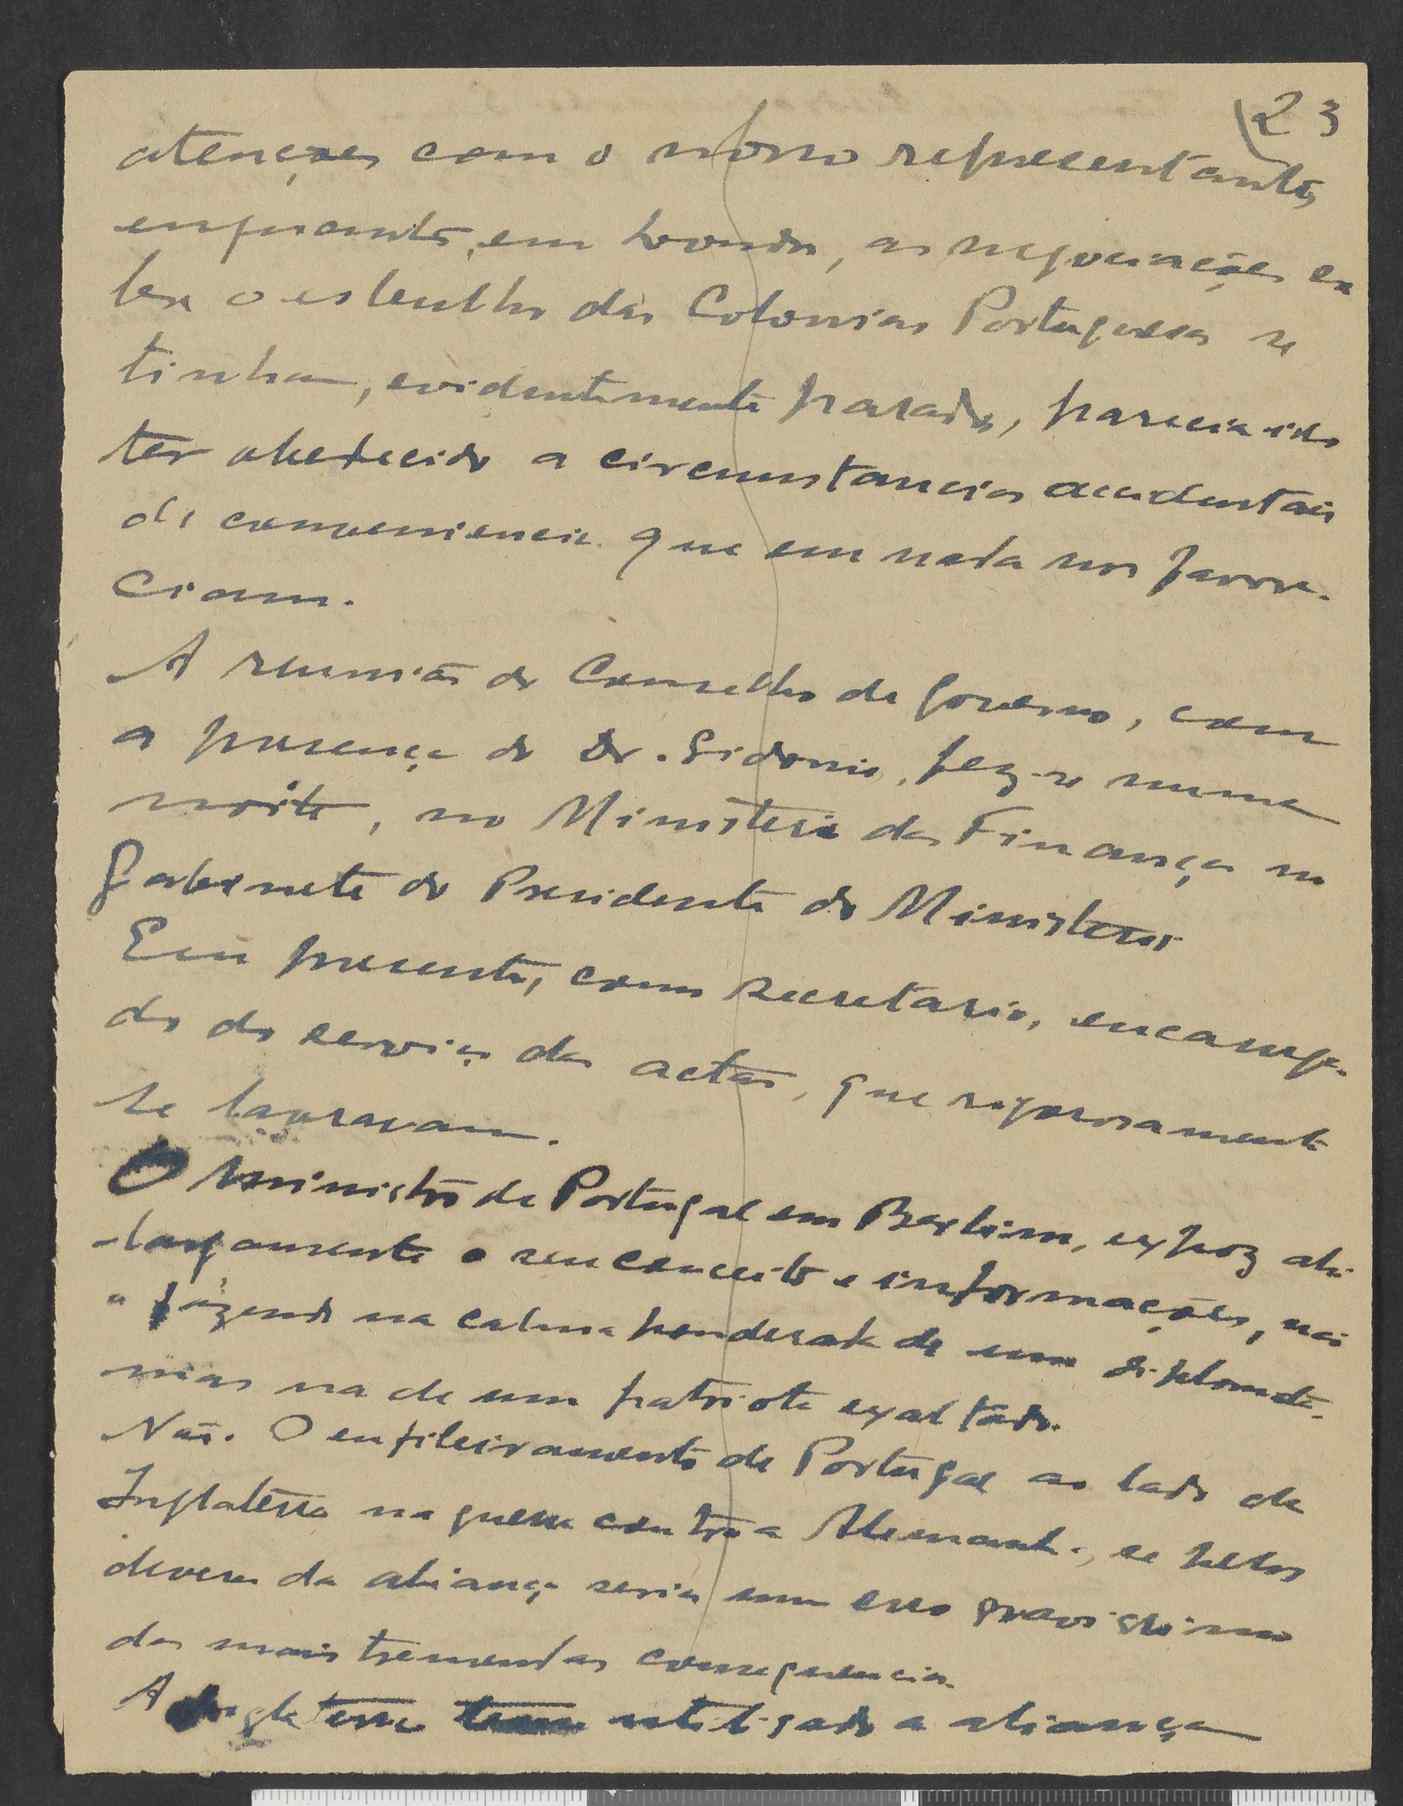 23
atenções com o nosso representante,
enquanto, em Londres, as negociações
o esbulho das Colonias Portuguesas se
tinham, evidentemente parado, parecia isso
ter obedecido a circumstancias accidentais
de conveniencia que em nada nos favore-
ciam.
A reunião do Conselho de Governo, com
a presença do Dr. Sidonio, fez-se numa
noite, no Ministerio das Finanças no
Gabinete do Presidente do Ministerio
Eu presente, como secretario, encarrega-
do do serviço das actas, que rigorosamente
se lavravam.
O ministro de Portugal em Berlim, expoz ali
largamente o seu conceito e informações, não
o fazendo na calma ponderada de um diplomata,
mas na de um patriota exaltado.
Não. O enfileiramento de Portugal ao lado da
Inglaterra na guerra contra a Alemanha, se pelos
deveres da aliança seria um erro gravissimo
das mais tremendas consequencias.
A Inglaterra utilisado a aliança